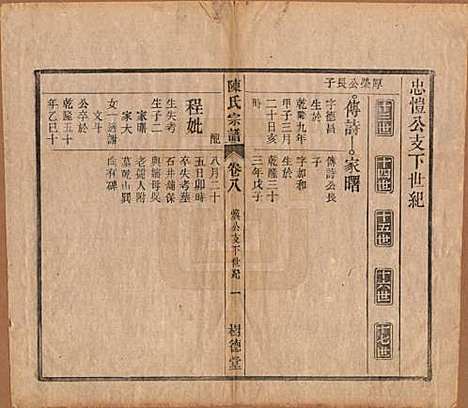 忠愷公支下世紀
十三世
十四世
十五世
十六世
十七世
厚榮公長子
傳詩
家曙
字德昌
生於
乾隆九年
甲子三月
二十日亥
時
傳詩公長
子
字如和
生於
乾隆三十
三年戊子
配
程妣
生失考
生子二
家曙
家大
女一適謝
文斗
公卒於
乾隆五十
年乙巳十
八月二十
五日卯時
卒失考墓
石井蒲保
與媳母吳
老孺人附
墓乾山巽
向有碑
陳氏宗譜
卷八
公支下世紀
一
樹德堂